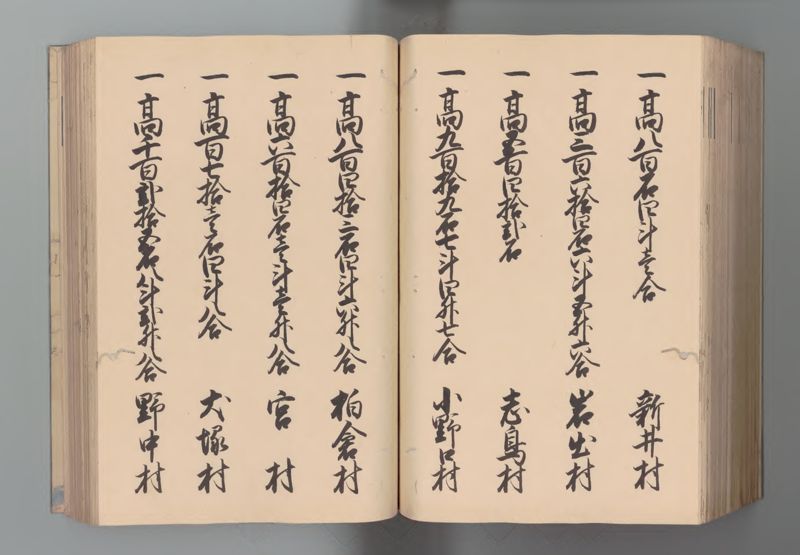 一高八百石四斗壱合 新井村
一高三百六拾四石六斗五升六合 岩出村
一高五百四拾弐石 志鳥村
一高九百拾九石七斗四升七合 小野口村
一高八百四拾三石四斗六升八合 柏倉村
一高六百拾四石壱斗壱升八合 宮村
一高百七拾壱石四斗八合 犬塚村
一高千百弐拾五石八斗弐升八合 野中村